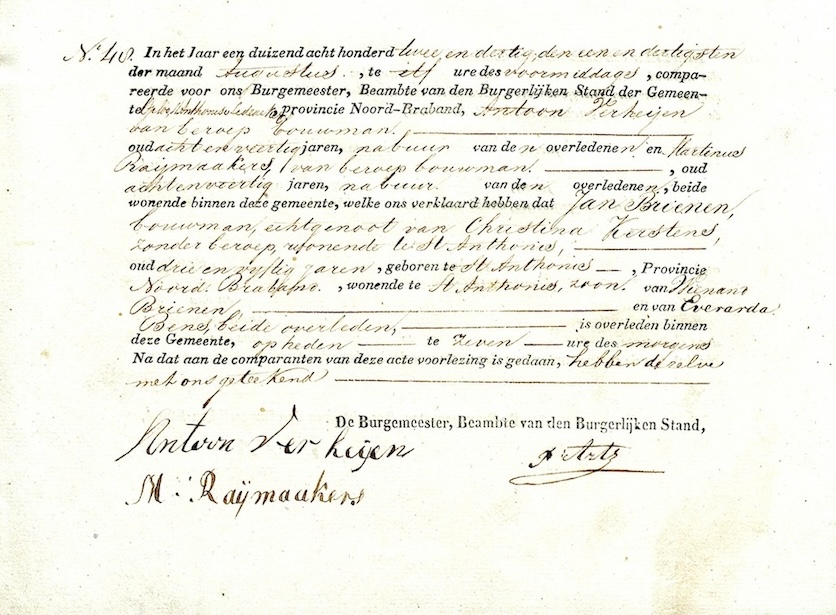 N.º 48. In het Jaar een duizend acht honderd twee en dertig, den een en dertigsten
der maand Augustus, te elf ure des voormiddags, compa-
reerde voor ons Burgemeester, Beambte van den Burgerlijken Stand der Gemeen-
te Anthonis, provincie Noord-Braband, Antoon Verheijen
van beroep bouwman.
oud acht en veertig jaren, nabuur van den overledenen en Martinus
Raijmaakers, van beroep bouwman. , oud
acht en veertig jaren, nabuur. van den overledenen, beide
wonende binnen deze gemeente, welke ons verklaard hebben dat Jan Brienen,
bouwman, echtgenoot van Christina Kerstens,
zonder beroep, wonende te St Anthonis,
oud drie en vyftig jaren, geboren te St Anthonis, Provincie
Noord. Braband, wonende te St Anthonis, zoon van Wienant
Brienen en van Everarda
Bens, beide overleden, is overleden binnen
deze Gemeente, op heden te zeven ure des morgens
Na dat aan de comparanten van deze acte voorlezing is gedaan, hebben de zelve
met ons geteekend
De Burgemeester, Beambte van den Burgerlijken Stand,
Antoon Verheijen
Artz
M: Raÿmaakers